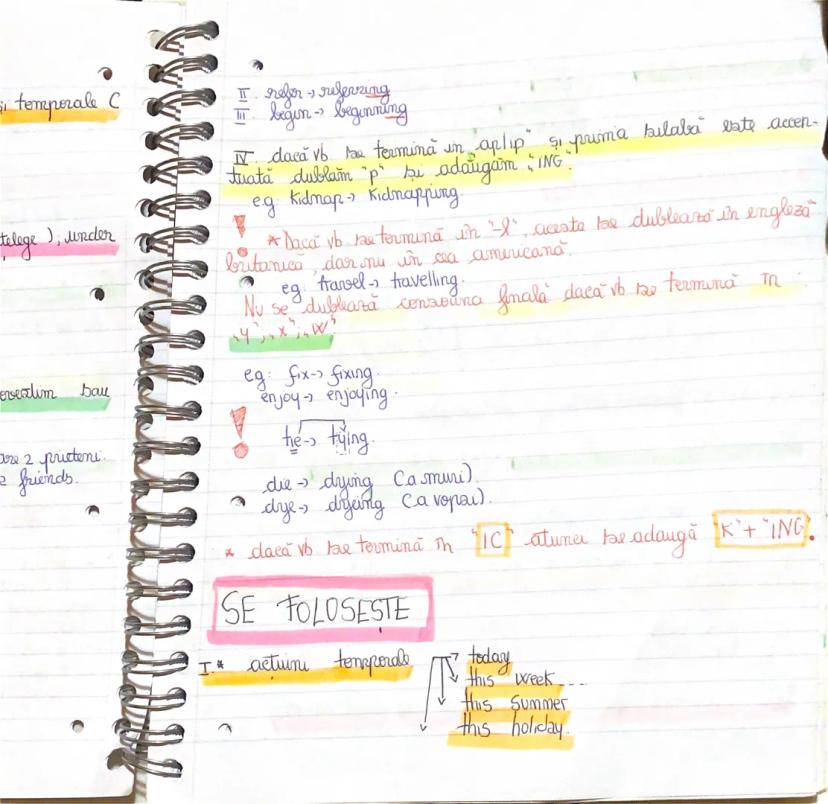 și temporale C
telege ), under
sau
are 2 prieteni.
2 friends.
II. refer → referring
III. begin → beginning
IV. dacă vb se termină în "ap/ip" și prima silabă este accen-
tuată dublăm "p" și adăugăm "ING".
eg: Kidnap → Kidnapping.
! * Dacă vb se termină în "-l", acesta se dublează în engleză
britanică, dar nu în cea americană.
eg: travel → travelling.
Nu se dublează consoana finală dacă vb se termină în
"y"; "x"; "w"
eg: fix → fixing.
enjoy → enjoying.
! tie → tying.
die → dying (a muri).
dye → dyeing (a vopsi).
* dacă vb se termină în "IC" atunci se adaugă "K" + "ING".
SE FOLOSEȘTE
I.* acțiuni temporale → today
this week ...
this summer
this holiday.